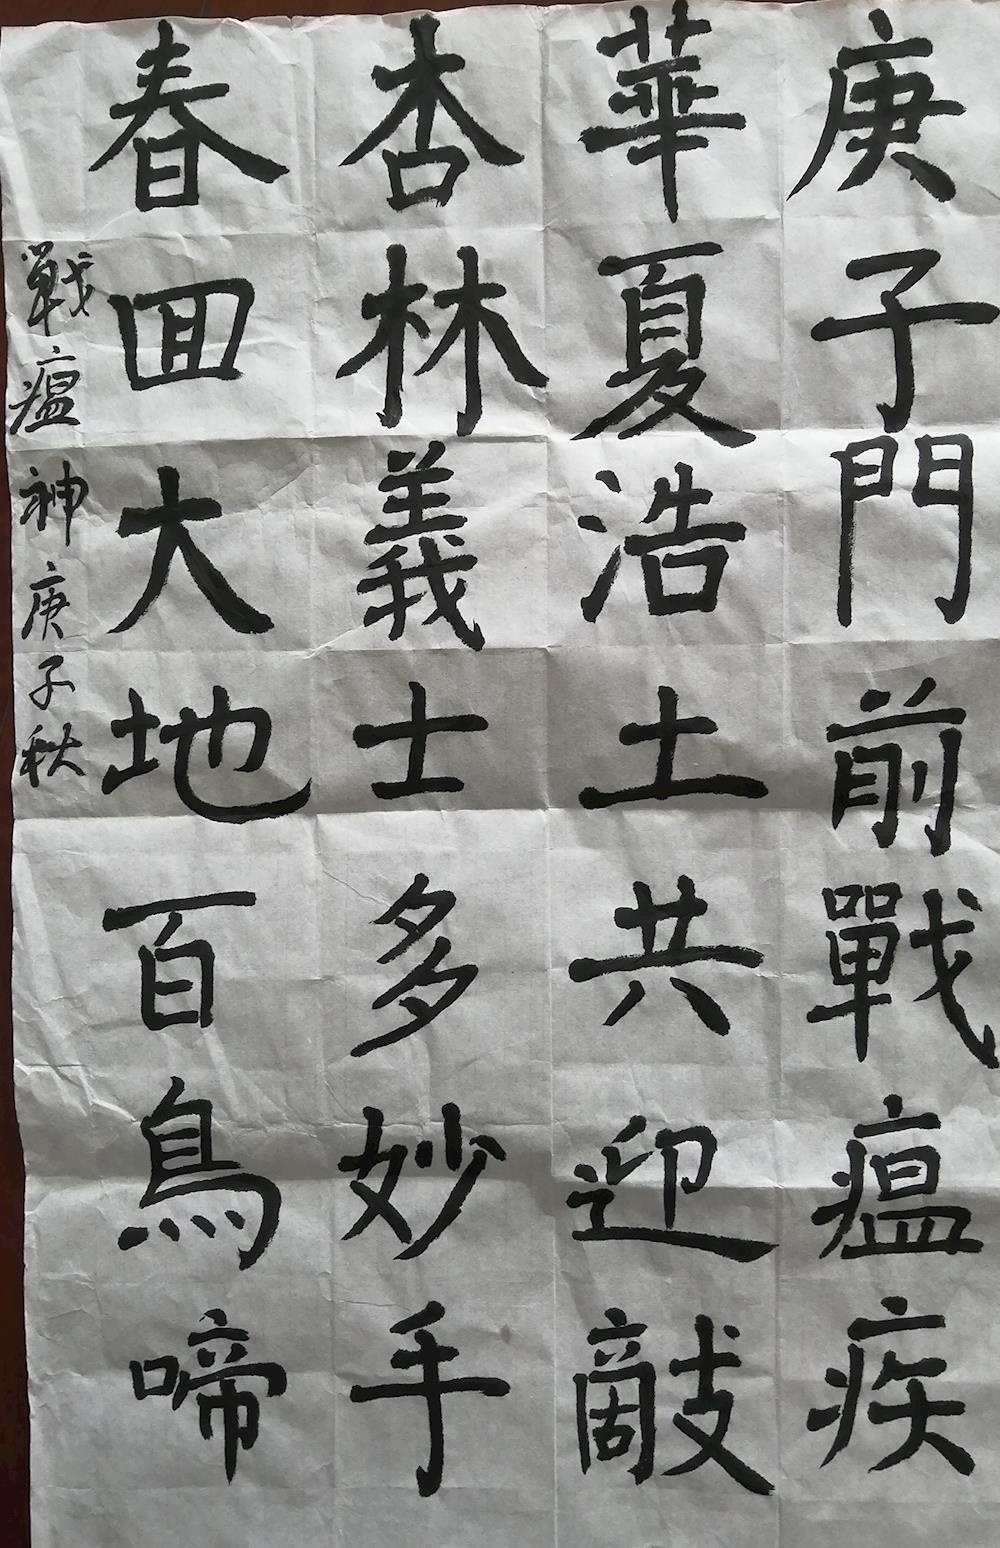 庚子門前戰瘟疾
華夏浩土共迎敵
杏林義士多妙手
春回大地百鳥啼
戰瘟神庚子秋